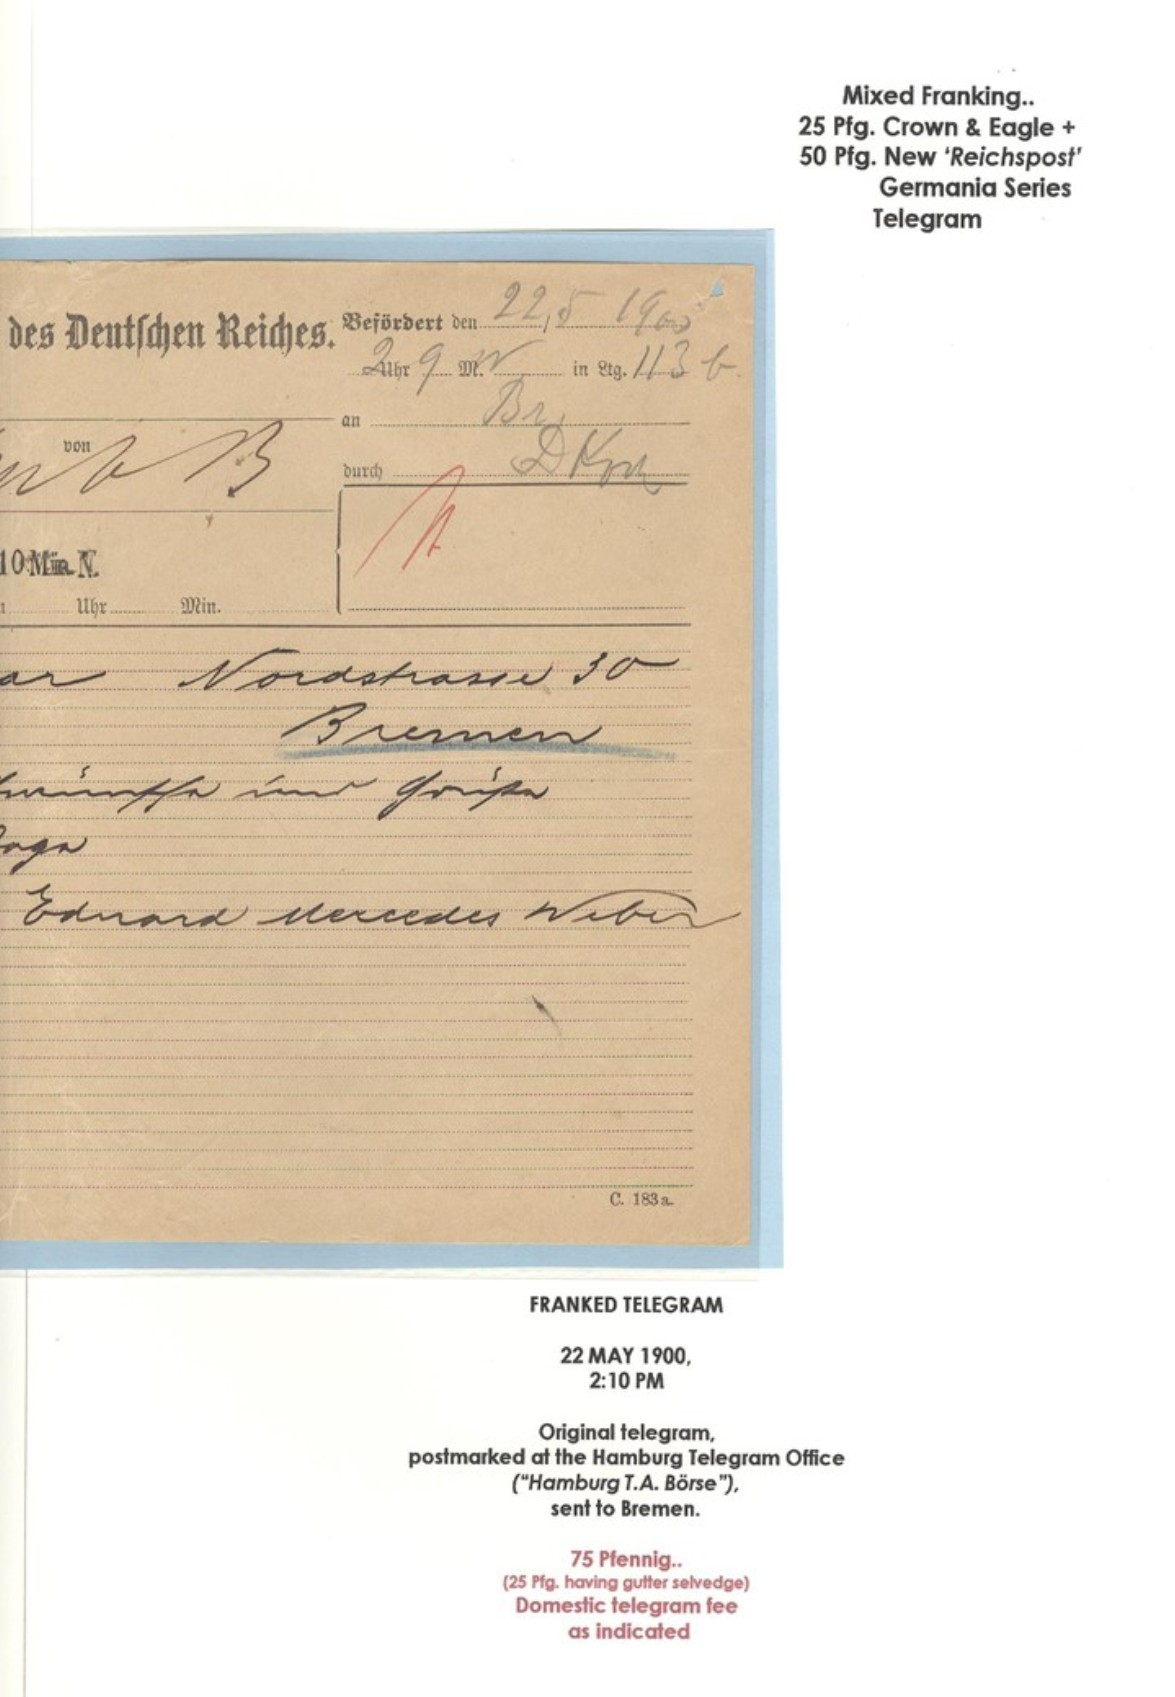 Mixed Franking..
25 Pfg. Crown & Eagle +
50 Pfg. New ‘Reichspost’
Germania Series
Telegram
des Deutſchen Reiches.
Befördert den 22/5 1900
2 Uhr 9 M. N in Ltg. 113 b.
an Br.
von B
durch
10 Min. N.
Uhr Min.
Nordstrasse 30
Bremen
und Grüße
Eduard Mercedes Weber
C. 183a.
FRANKED TELEGRAM
22 MAY 1900,
2:10 PM
Original telegram,
postmarked at the Hamburg Telegram Office
(“Hamburg T.A. Börse”),
sent to Bremen.
75 Pfennig..
(25 Pfg. having gutter selvedge)
Domestic telegram fee
as indicated